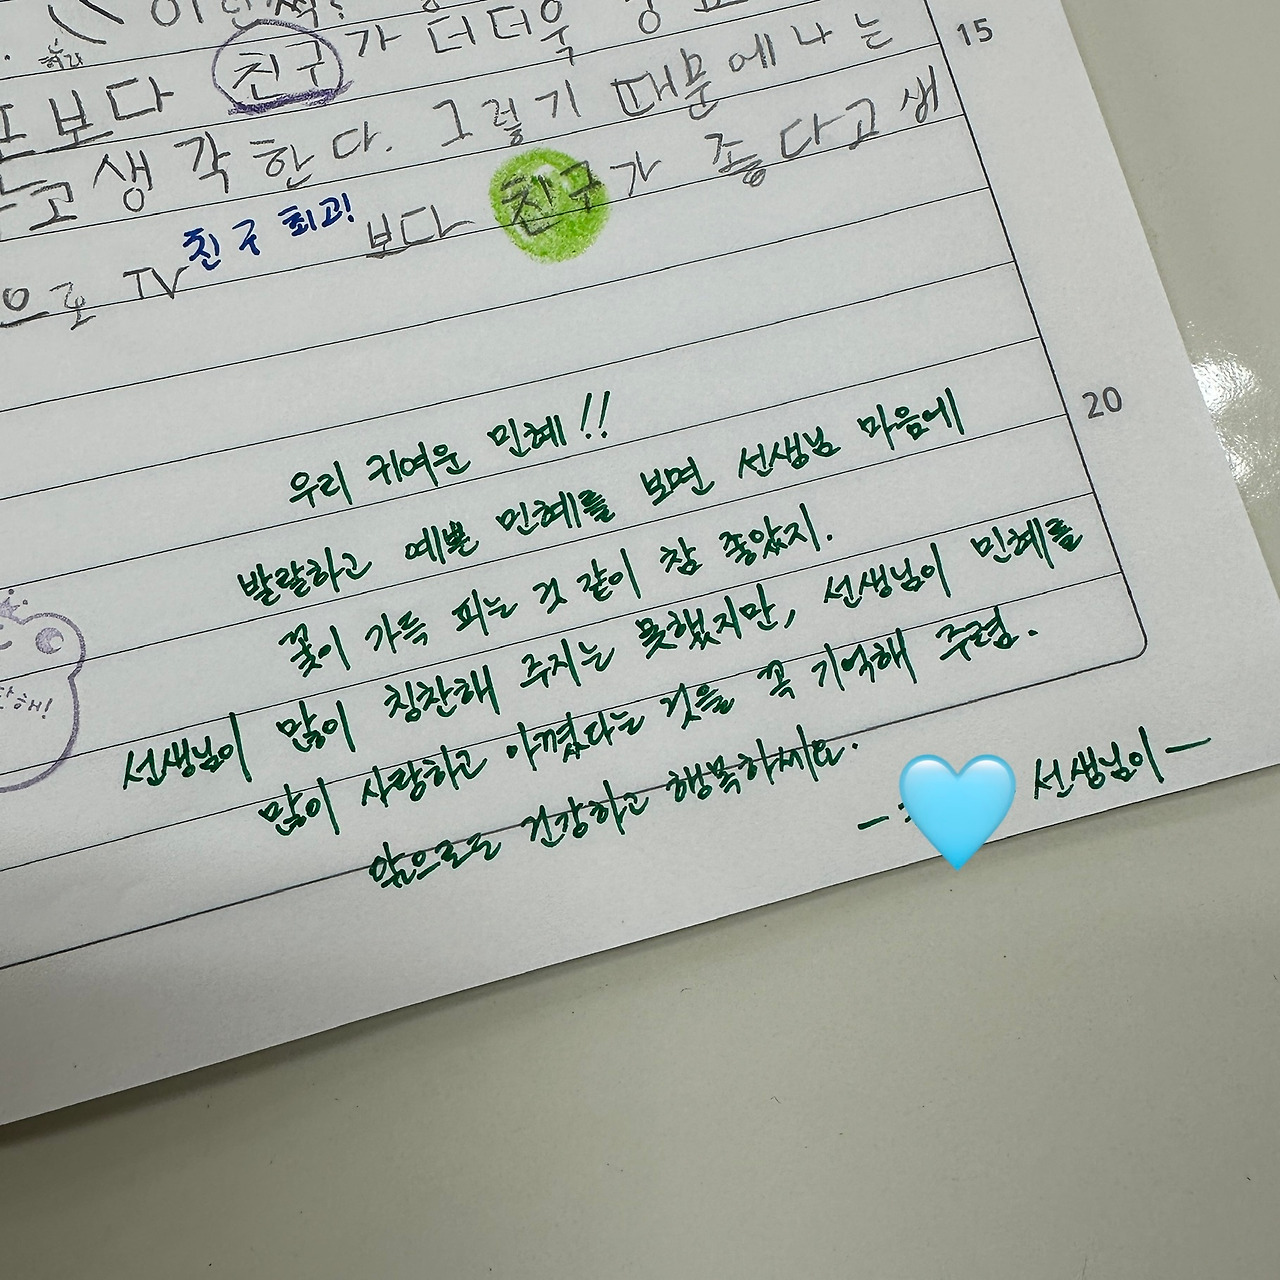 보다 친구가 더더욱
고 생각한다. 그렇기 때문에 나는
친구 최고!
으로 TV보다 친구가 좋다고 생
15
20
우리 귀여운 민혜!!
발랄하고 예쁜 민혜를 보면 선생님 마음에
꽃이 가득 피는 것 같이 참 좋았지.
선생님이 많이 칭찬해 주지는 못했지만, 선생님이 민혜를
많이 사랑하고 아꼈다는 것을 꼭 기억해 주렴.
앞으로도 건강하고 행복하세요.
- 선생님이 -